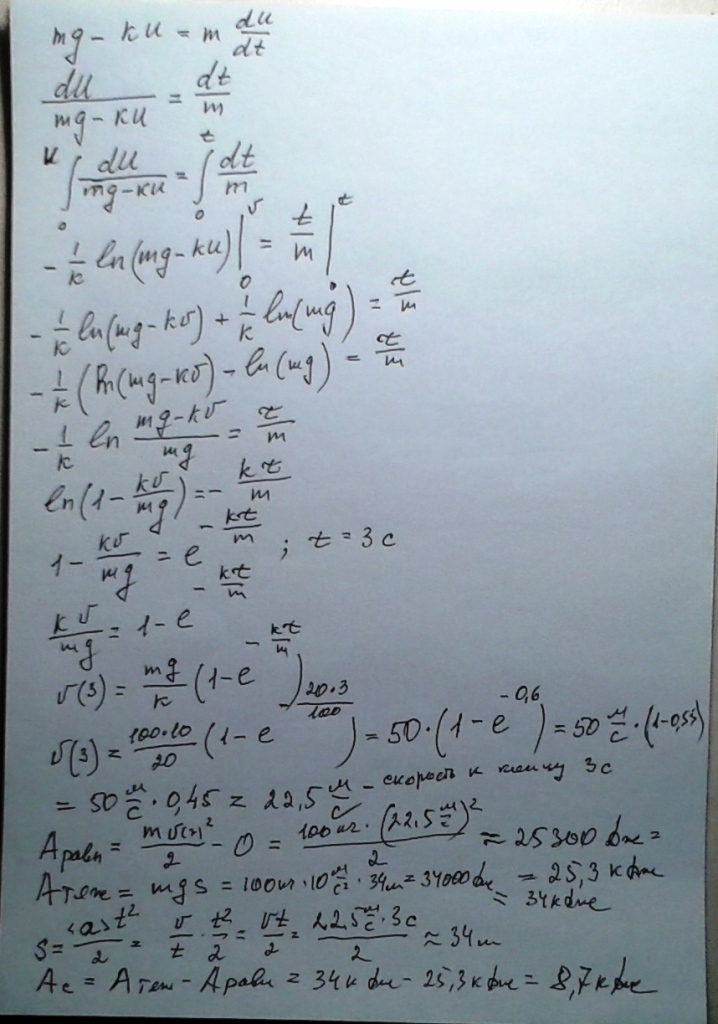 mg - ku = m du/dt
du/(mg - ku) = dt/m
∫₀ᵛ du/(mg-ku) = ∫₀ᵗ dt/m
-1/k ln(mg-ku)|₀ᵛ = t/m|₀ᵗ
-1/k ln(mg-kv) + 1/k ln(mg) = t/m
-1/k (ln(mg-kv) - ln(mg)) = t/m
-1/k ln (mg-kv)/mg = t/m
ln(1 - kv/mg) = - kt/m
1 - kv/mg = e^(-kt/m) ; t = 3 с
kv/mg = 1 - e^(-kt/m)
v(3) = mg/k (1 - e^(-kt/m))
v(3) = 100·10/20 (1 - e^(-20·3/100)) = 50·(1 - e^(-0,6)) = 50 м/с·(1-0,55)
= 50 м/с · 0,45 = 22,5 м/с - скорость к концу 3с
Aравн = mv(3)²/2 - 0 = 100кг·(22,5 м/с)²/2 ≈ 25300 Дж =
= 25,3 кДж
Aтяж = mgs = 100кг·10 м/с²·34м = 34000 Дж = 34кДж
s = <a>t²/2 = v/t · t²/2 = vt/2 = 22,5 м/с·3с/2 ≈ 34м
Ac = Aтяж - Aравн = 34кДж - 25,3кДж = 8,7кДж